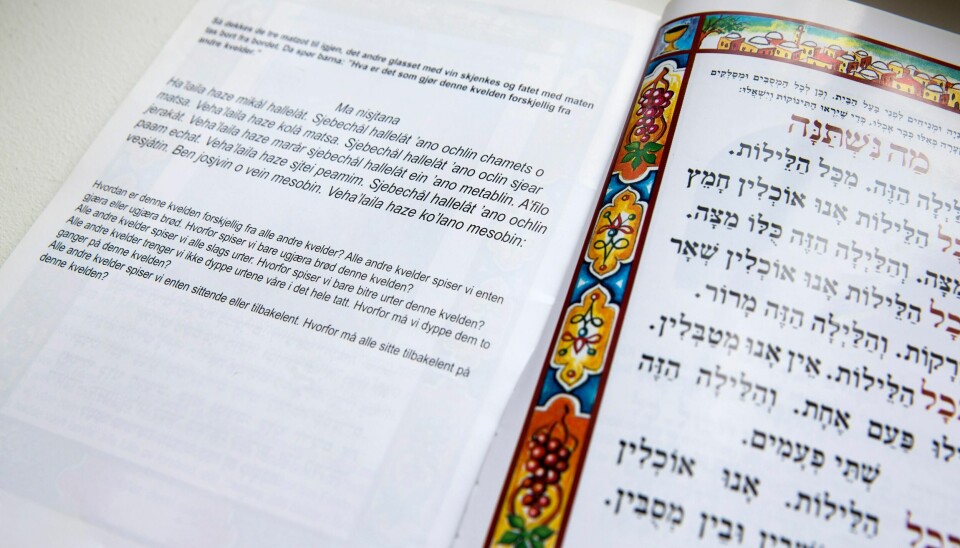 Så dekkes de tre matsot til igjen, det andre glasset med vin skjenkes og fatet med maten
tas bort fra bordet. Da spør barna: "Hva er det som gjør denne kvelden forskjellig fra
andre kvelder."
Ma nisjtana
Ha'laila haze mikál hallelát. Sjebechál hallelát 'ano ochlin chamets o
matsa. Veha'laila haze kolá matsa. Sjebechál hallelát 'ano oclin sjear
jerakát. Veha'laila haze marár sjebechál hallelát ein 'ano metablin. A'filo
paam echat. Veha'laila haze sjtei peamim. Sjebechál hallelát 'ano ochlin
vesjátin. Ben josjvin o vein mesobin. Veha'laila haze ko'lano mesobin:
Hvordan er denne kvelden forskjellig fra alle andre kvelder? Alle andre kvelder spiser vi enten
gjæra eller ugjæra brød. Hvorfor spiser vi bare ugjæra brød denne kvelden?
Alle andre kvelder spiser vi alle slags urter. Hvorfor spiser vi bare bitre urter denne kvelden?
Alle andre kvelder trenger vi ikke dyppe urtene våre i det hele tatt. Hvorfor må vi dyppe dem to
ganger på denne kvelden?
Alle andre kvelder spiser vi enten sittende eller tilbakelent. Hvorfor må alle sitte tilbakelent på
denne kvelden?
ומניחים לפני בעל הבית. וכן לכל המסבים ומסלקים
כבר אכלו. כדי שיראו התינוקות וישאלו:
מַה נִּשְׁתַּנָּה
הַזֶּה. מִכָּל הַלֵּילוֹת.
הַלֵּילוֹת אָנוּ אוֹכְלִין חָמֵץ
מַצָּה. וְהַלַּיְלָה הַזֶּה כֻּלּוֹ מַצָּה.
הַלֵּילוֹת אָנוּ אוֹכְלִין שְׁאָר
וְהַלַּיְלָה הַזֶּה מָרוֹר.
הַלֵּילוֹת. אֵין אָנוּ מְטַבְּלִין.
פַּעַם אֶחָת. וְהַלַּיְלָה הַזֶּה
שְׁתֵּי פְעָמִים.
הַלֵּילוֹת. אָנוּ אוֹכְלִין
וּבֵין מְסֻבִּין.